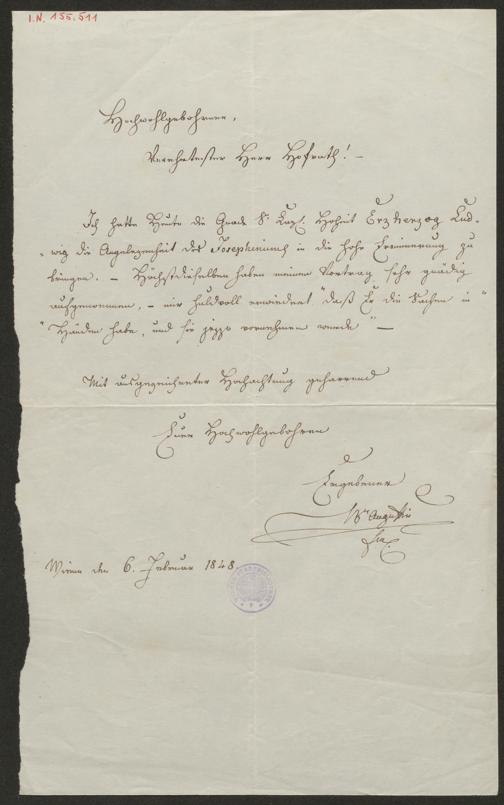 I.N. 155.511
Hochwohlgebohrner,
Verehrtester Herr Hofrath! –
Ich hatte Heute die Gnade Sr Kays. Hoheit Erzherzog Lud-
-wig die Angelegenheit des Josephinums in die hohe Erinnerung zu
bringen. – Höchstdieselben haben meinen Vortrag sehr gnädig
aufgenommen, – mir huldvoll erwiedert "daß Er die Sachen in"
"Händen habe, und sie jezzo vornehmen werde" –
Mit ausgezeichneter Hochachtung geharrend
Euer Hochwohlgebohren
Ergebener
Br Augustin
Wienn den 6. Februar 1848